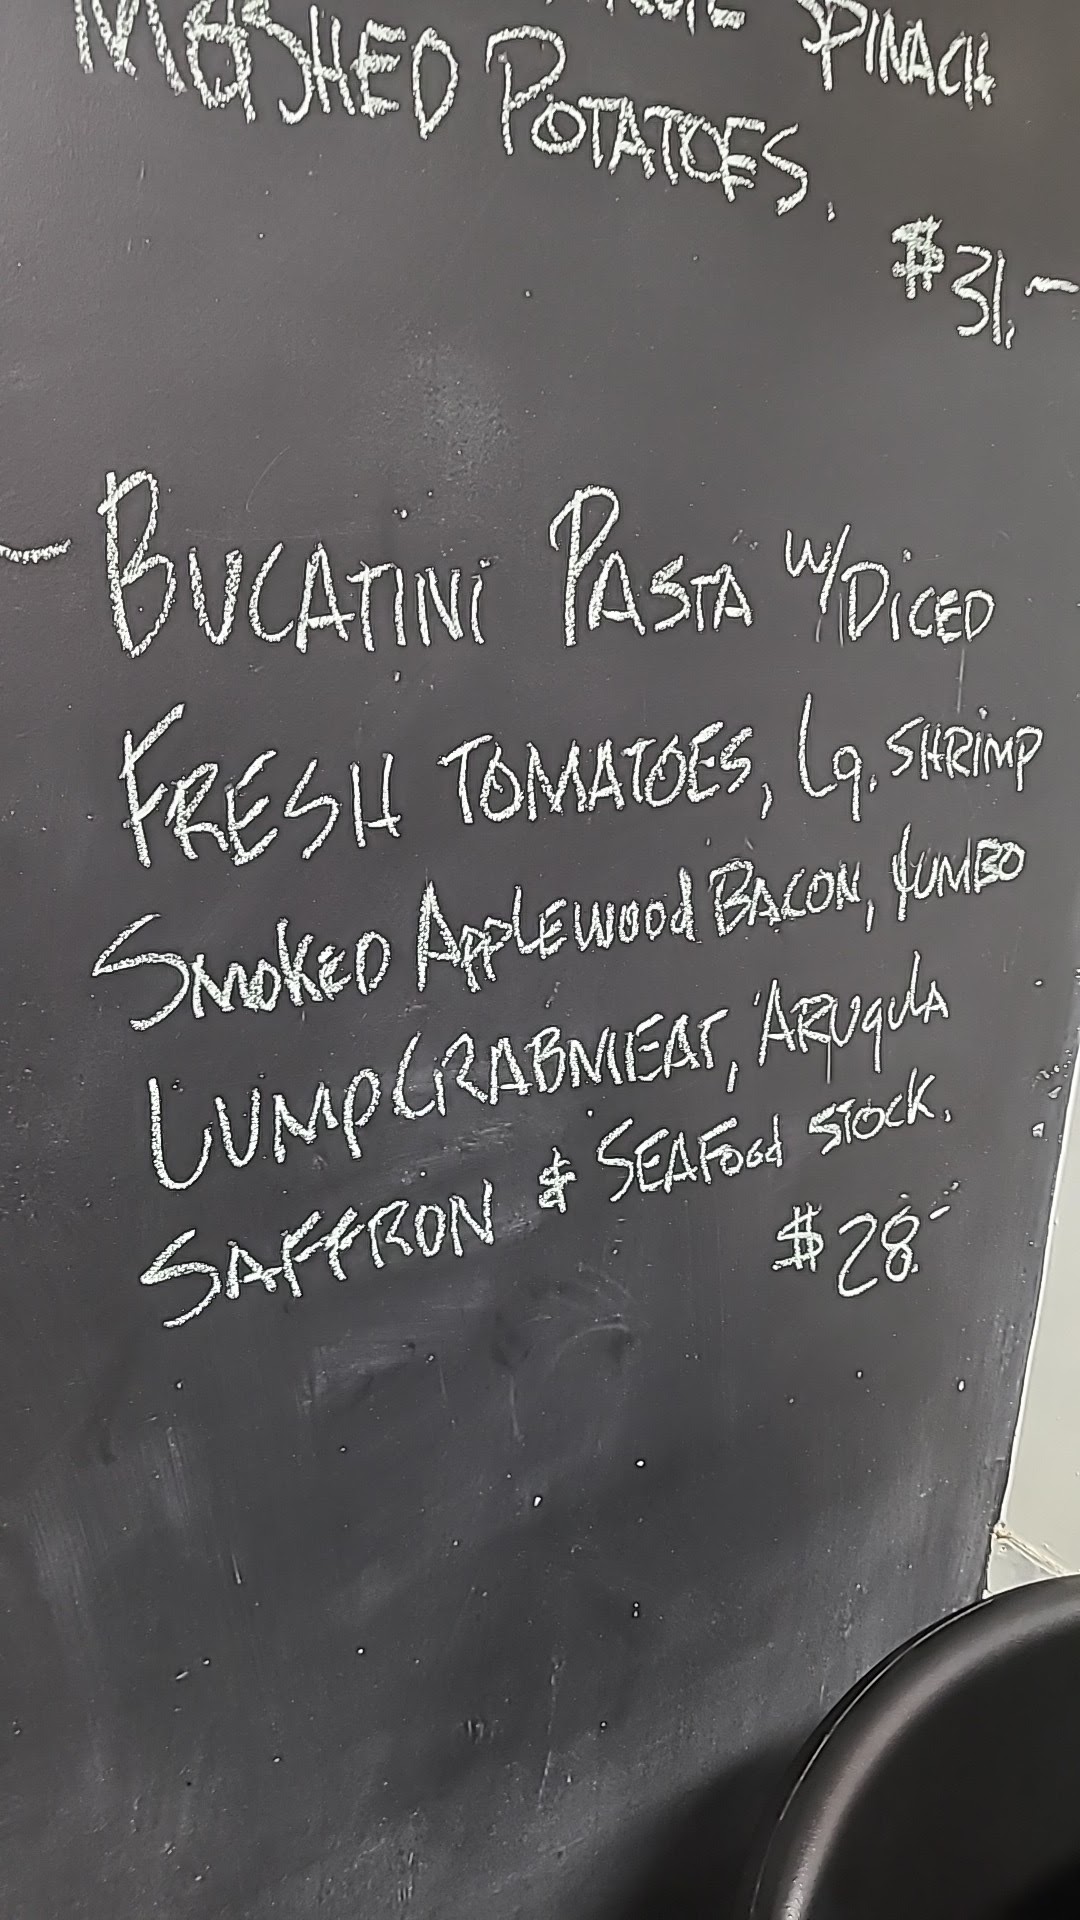 SPINACH
MASHED POTATOES.
$31.-
- BUCATINI PASTA w/DICED
FRESH TOMATOES, Lg. SHRIMP
SMOKED APPLEWOOD BACON, JUMBO
LUMP CRABMEAT, ARUGULA
SAFFRON & SEAFOOD STOCK.
$28.-